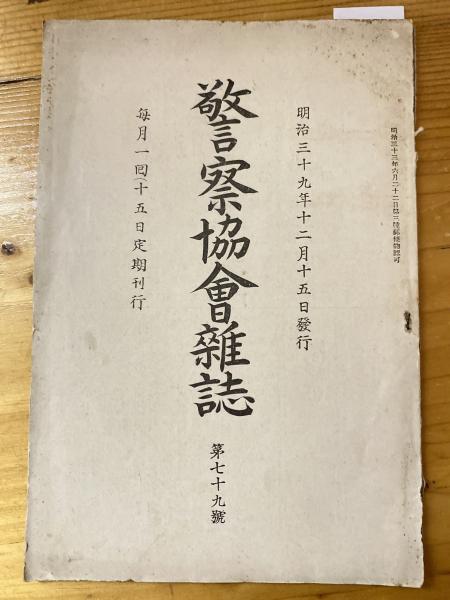 明治三十三年六月二十二日第三種郵便物認可
明治三十九年十二月十五日發行
警察協會雜誌
第七十九號
每月一回(十五日定期刊行